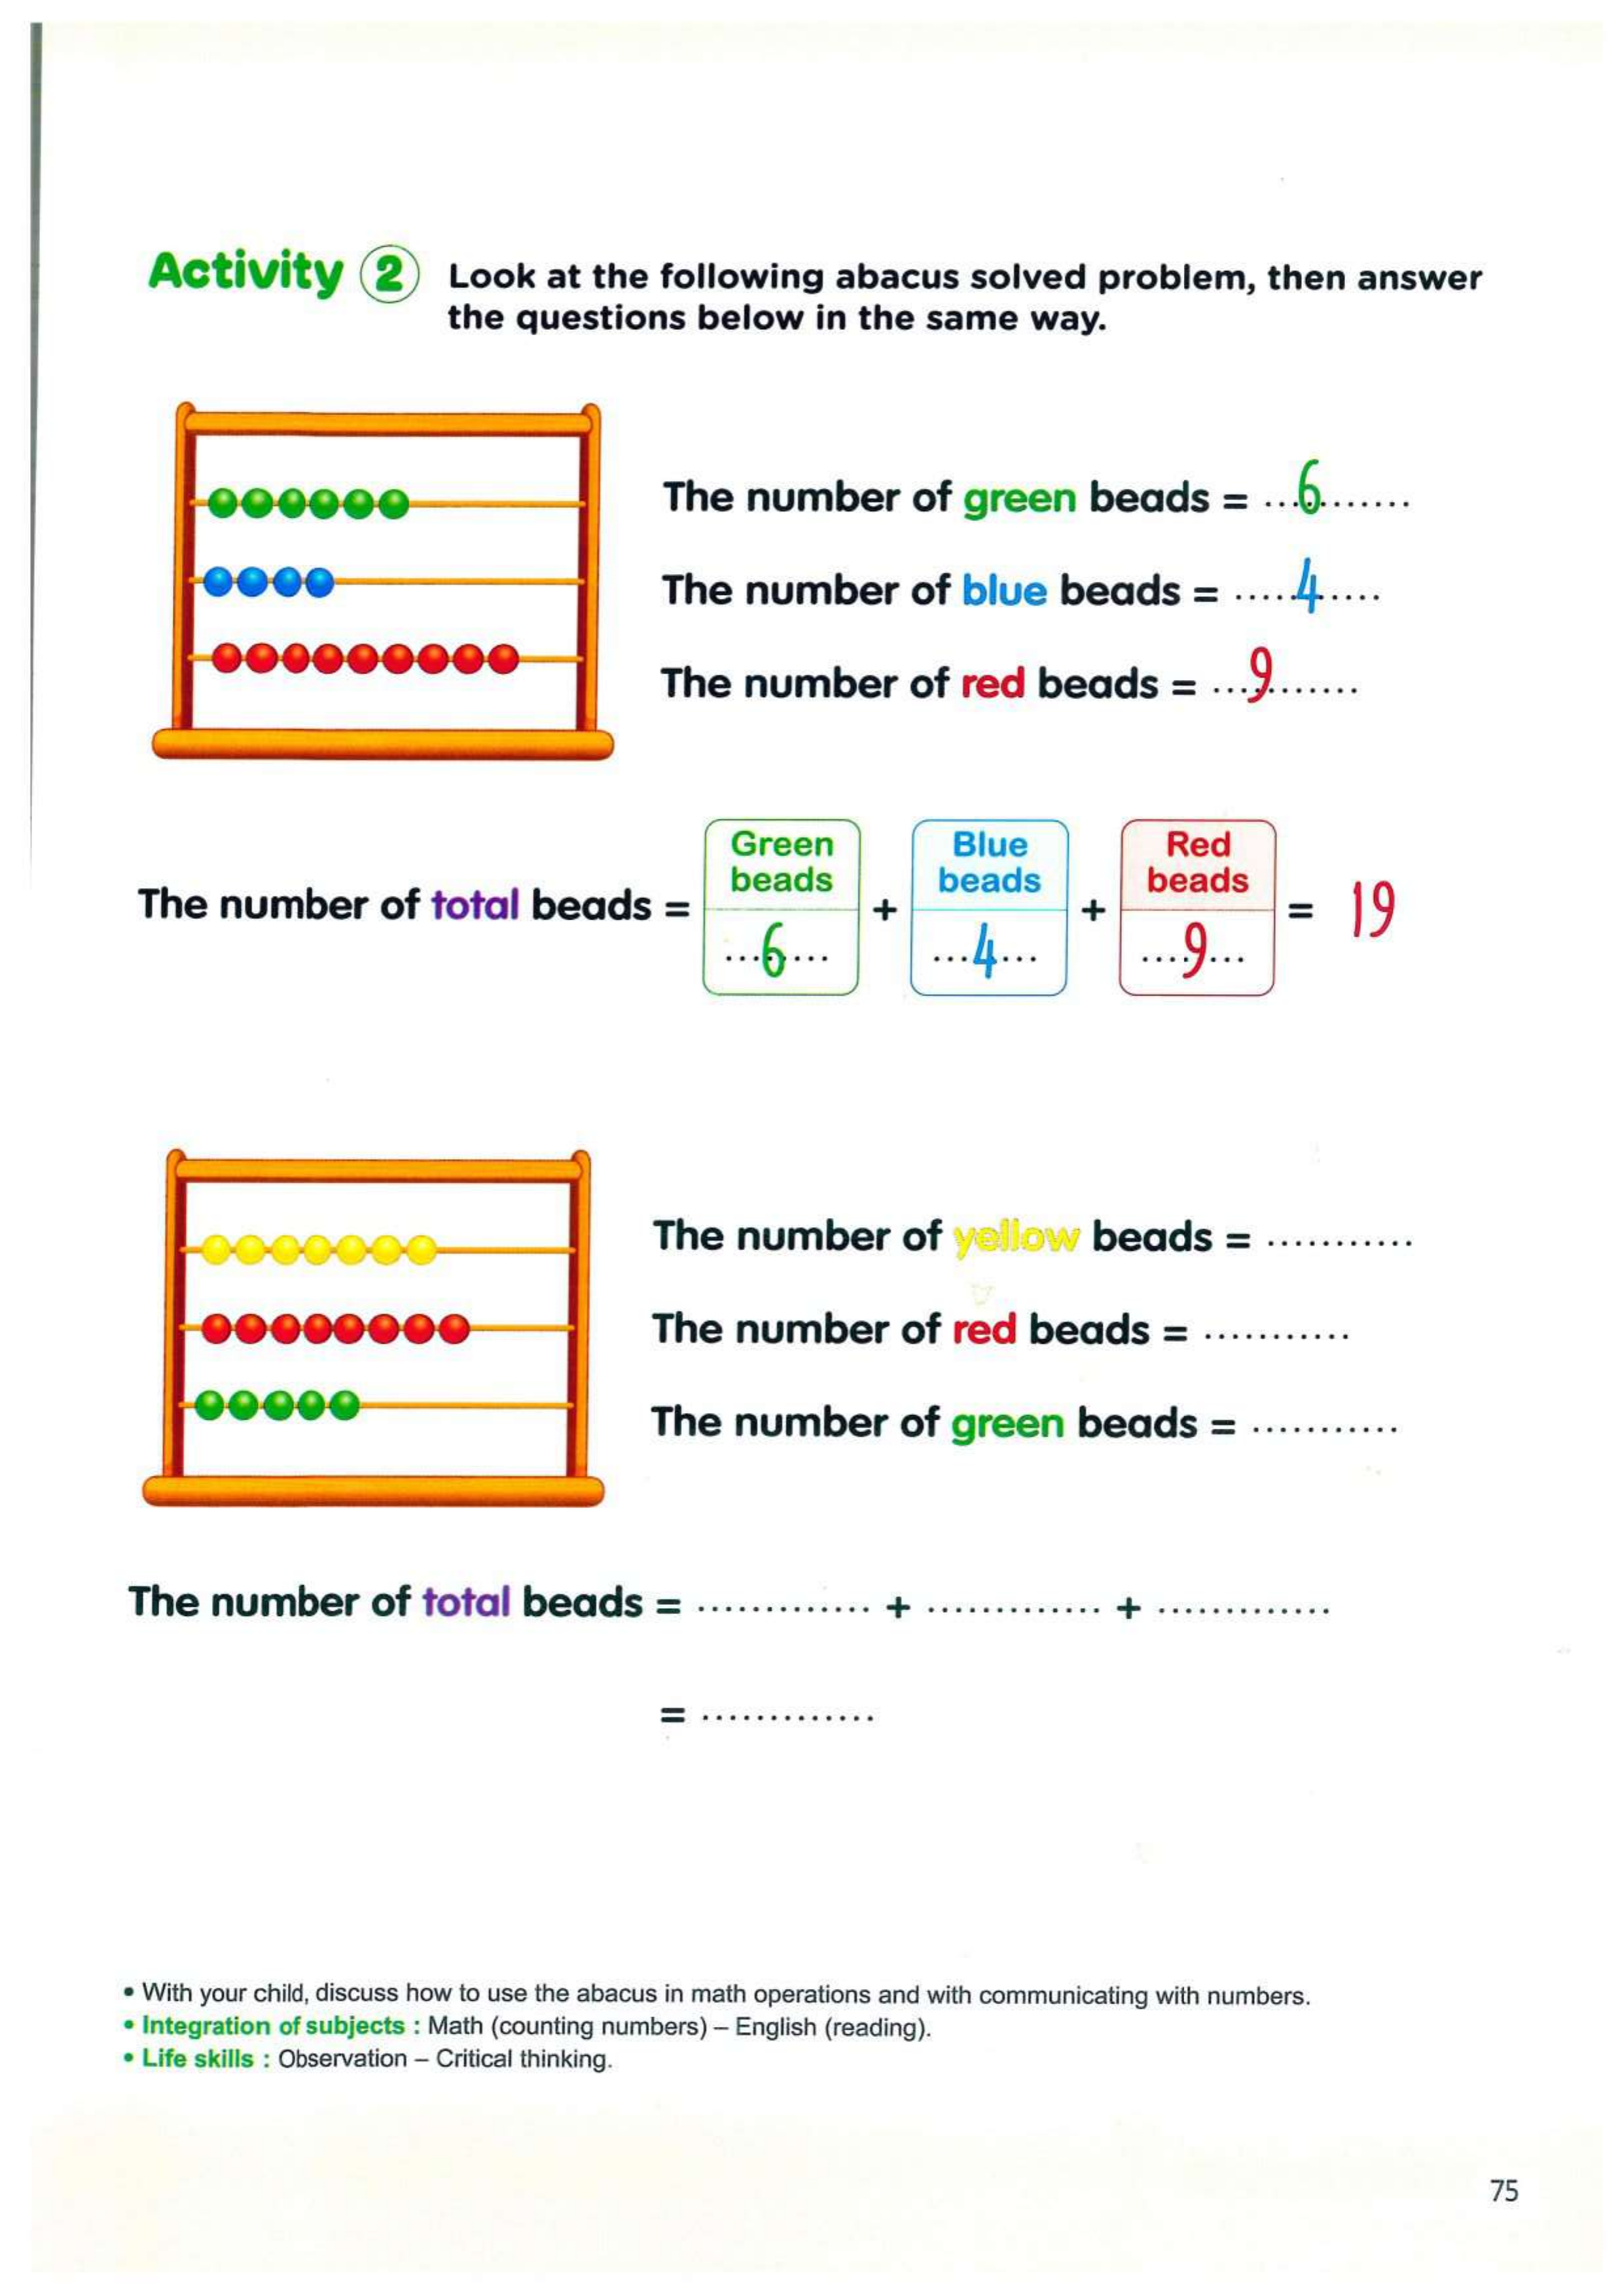 Activity 2 Look at the following abacus solved problem, then answer
the questions below in the same way.
The number of green beads = ...6.......
The number of blue beads = .....4....
The number of red beads = ...9.......
Green beads
Blue beads
Red beads
The number of total beads = ...6... + ...4... + ....9... = 19
The number of yellow beads = ...........
The number of red beads = ...........
The number of green beads = ...........
The number of total beads = ............. + ............. + .............
= .............
• With your child, discuss how to use the abacus in math operations and with communicating with numbers.
• Integration of subjects : Math (counting numbers) – English (reading).
• Life skills : Observation – Critical thinking.
75